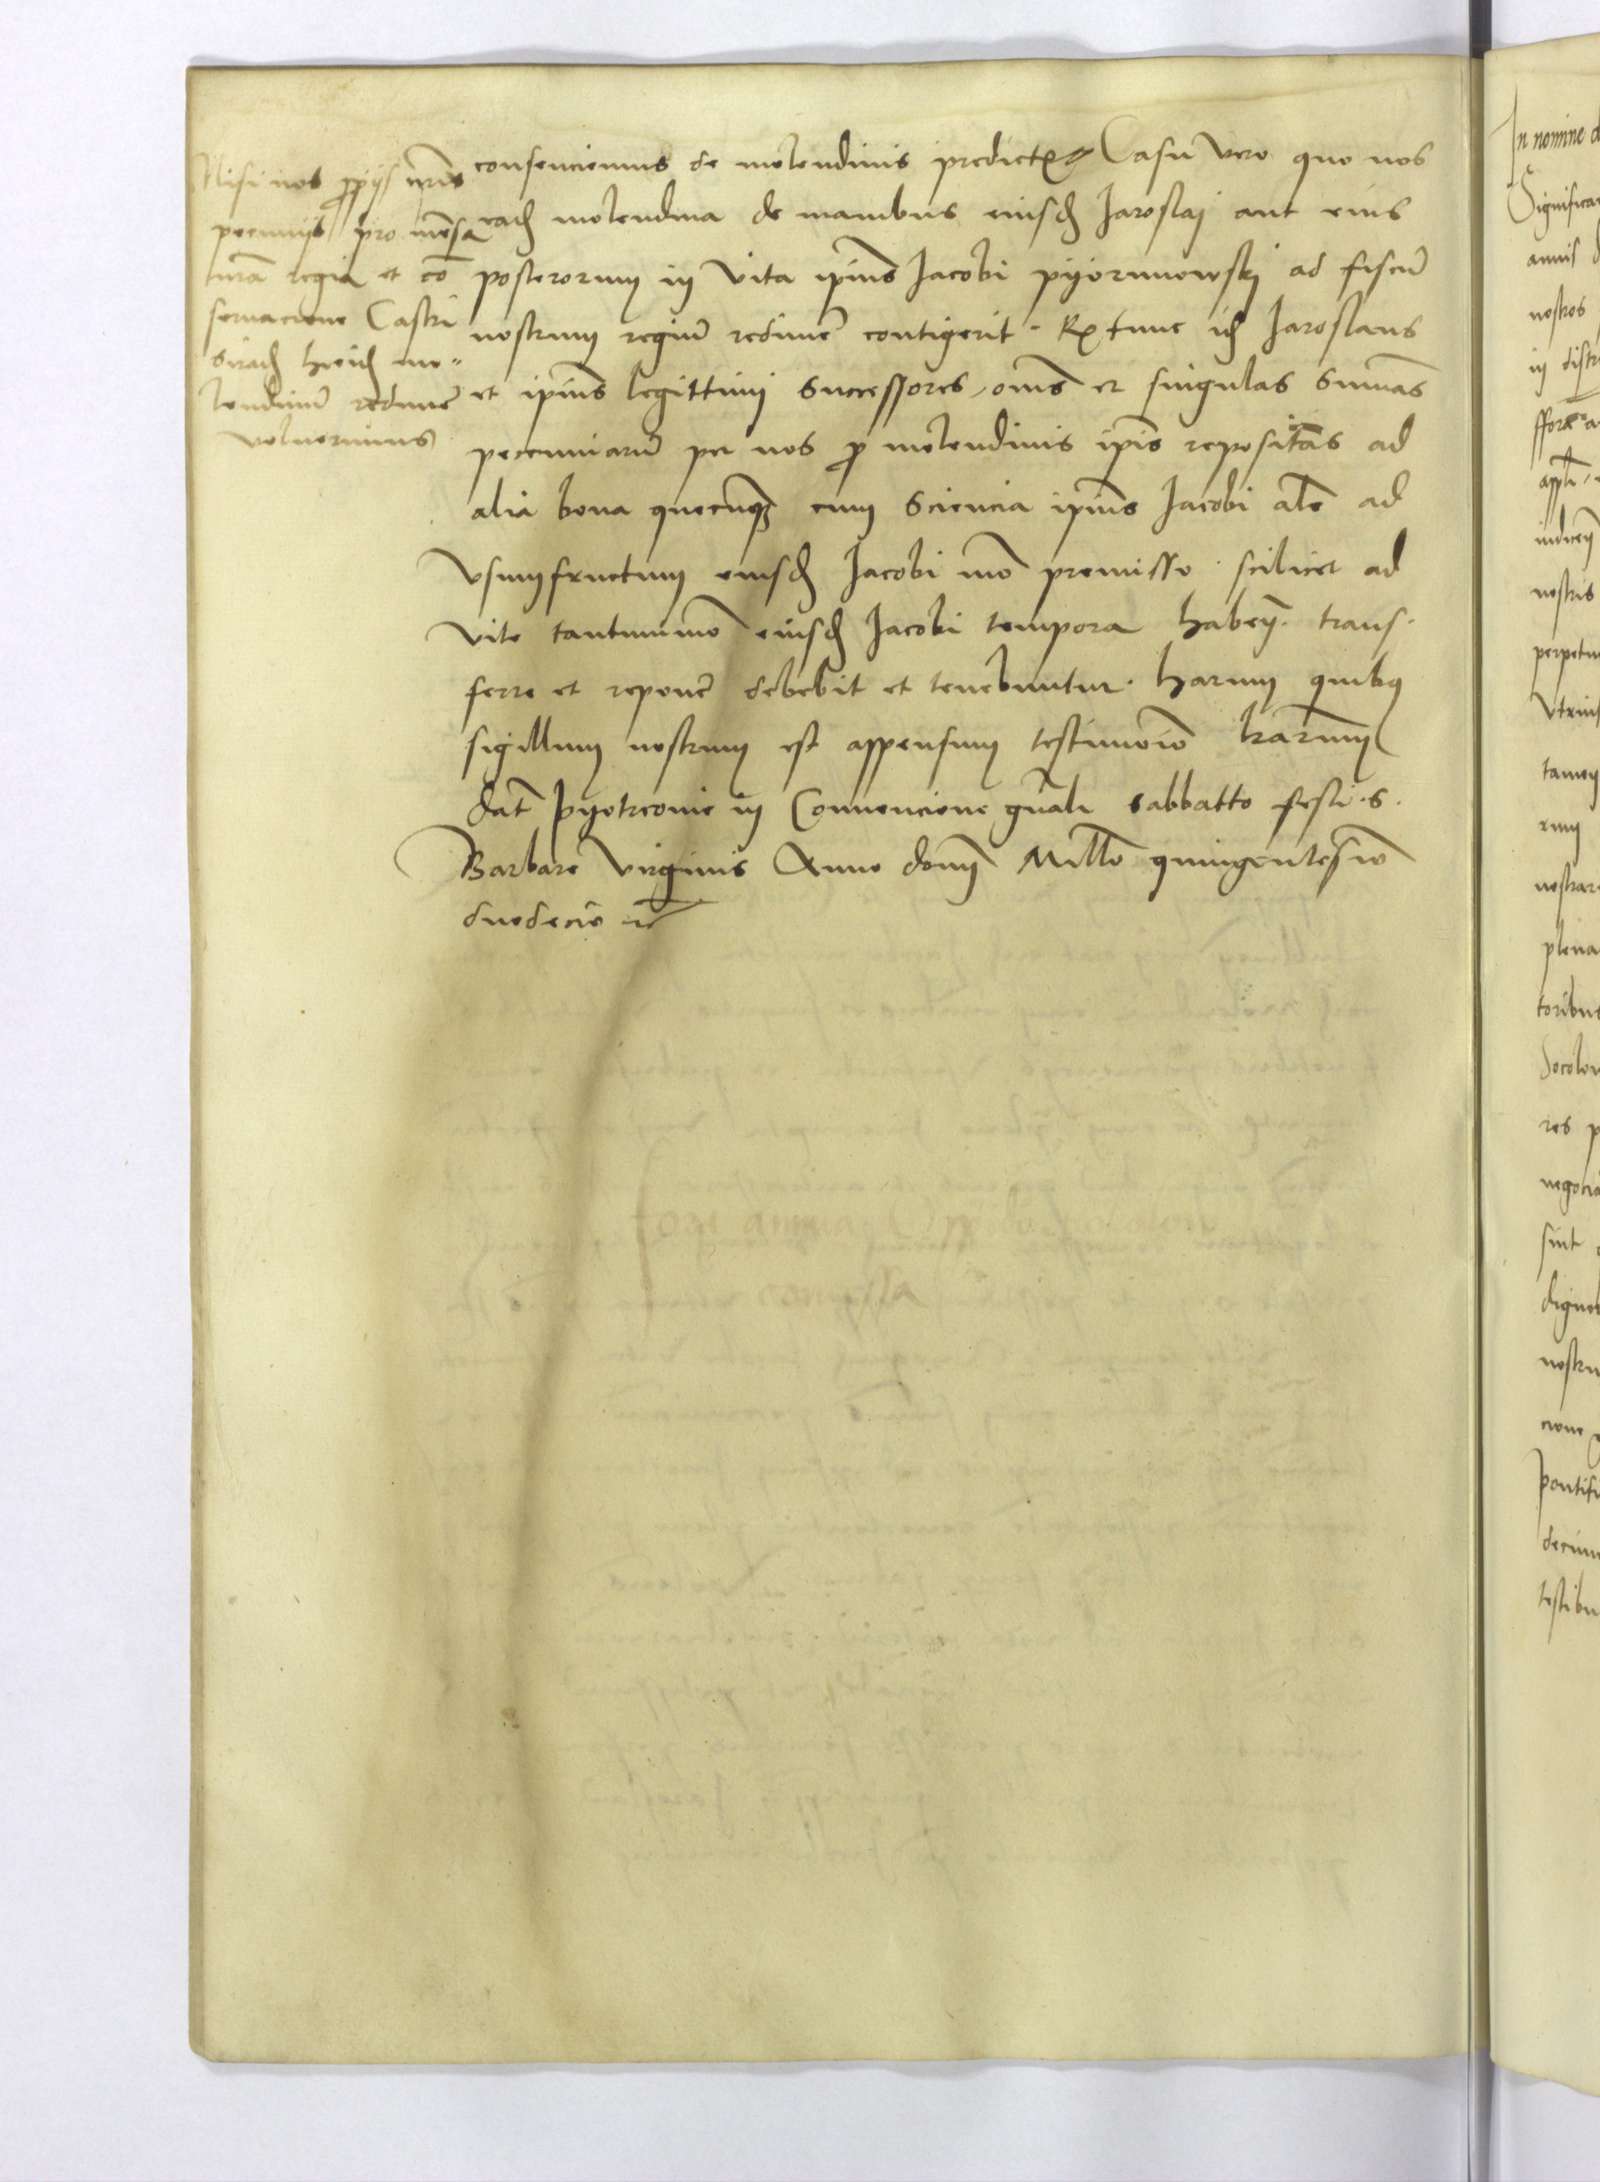 Nisi nos ppijs nris
pecunijs pro mensa
nra regia et con
servacione Castri
Sirad hmoi mo=
lendinu redimē
voluerimus
consenciemus de molendinis predictis Casu vero quo nos
ead molendina de manibus eiusd Jaroslaj aut eius
posterorum in vita ipius Jacobi pijorunowskj ad fiscū
nostrum regiū redimē contigerit. Extunc id Jaroslaus
et ipius legittimi Successores, oms et singulas Sumas
pecuniarū per nos p molendinis ipis repositas ad
alia bona quecunq cum Sciencia ipius Jacobi ale ad
Vsumfructum eiusd Jacobi mo premisso scilicet ad
vite tantummo eiusd Jacobi tempora habeñ. trans
ferre et reponē debebit et tenebuntur. Harum quibus
sigillum nostrum est appensum testimoio lrarum
dat Pyotrcovie in Convencione gnali sabbatto festi s.
Barbare Virginis Anno domi Millo quingentesio
duodecio
In nomine d
Significa
annis
nostros
in distr
appli
iudicy
nostris
perpetu
Vtrius
tamen
rum
nostrar
plena
toribus
Socolov
res p
negocia
sint
digne
nostru
cione
pontifi
decim
testibu